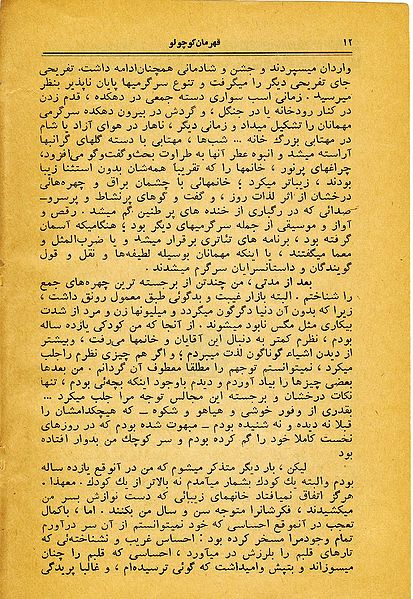 ۱۲ قهرمان کوچولو
واردان میسپردند و جشن و شادمانی همچنان ادامه داشت. تفریحی
جای تفریحی دیگر را میگرفت و تنوع سرگرمیها پایان ناپذیر بنظر
میرسید . زمانی اسب سواری دسته جمعی در دهکده ، قدم زدن
در کنار رودخانه یا در جنگل ، و گردش در بیرون دهکده سرگرمی
مهمانان را تشکیل میداد و زمانی دیگر ، ناهار در هوای آزاد یا شام
در مهتابی بزرگ خانه ... شب‌ها ، مهتابی با دسته گلهای گرانبها
آراسته میشد و انبوه عطر آنها به طراوت بحث‌وگفت‌وگو می‌افزود،
چراغهای پرنور ، خانمها را که تقریباً همه‌شان بدون استثنا زیبا
بودند ، زیباتر میکرد ؛ خانمهائی با چشمان براق و چهره‌هائی
درخشان از اثر لذات روز ، و گفت و گوهای پرنشاط و پرسرو-
صدائی که در رگباری از خنده های پر طنین گم میشد . رقص و
آواز و موسیقی از جمله سرگرمیهای دیگر بود ؛ هنگامیکه آسمان
گرفته بود ، برنامه های تئاتری برقرار میشد و یا ضرب‌المثل و
معما میگفتند ، یا اینکه مهمانان بوسیله لطیفه‌ها و نقل و قول
گویندگان و داستانسرایان سرگرم میشدند .
بعد از مدتی ، من چندتن از برجسته ترین چهره‌های جمع
را شناختم . البته بازار غیبت و بدگوئی طبق معمول رونق داشت ،
زیرا که بدون آن دنیا دگرگون میگردد و میلیونها زن و مرد از شدت
بیکاری مثل مگس نابود میشوند . از آنجا که من کودکی یازده ساله
بودم ، نظرم کمتر به دنبال این آقایان و خانمها می‌رفت ، وبیشتر
از دیدن اشیاء گوناگون لذت میبردم ؛ و اگر هم چیزی نظرم راجلب
میکرد ، نمیتوانستم توجهم را مطلقا معطوف آن گردانم . من بعدها
بعضی چیزها را بیاد آوردم و دیدم باوجود اینکه بچه‌ئی بودم ، تنها
نکات درخشان و برجسته این مجالس توجه مرا جلب میکرد ...
بقدری از وفور خوشی و هیاهو و شکوه ـ که هیچکدامشان را
قبلا نه دیده و نه شنیده بودم ـ مبهوت شده بودم که در روزهای
نخست کاملا خود را گم کرده بودم و سر کوچك من بدوار افتاده
بود
لیکن ، بار دیگر متذکر میشوم که من در آنموقع یازده ساله
بودم والبته یك کودك بشمار میآمدم نه بالاتر از یك کودك . معهذا .
هرگز اتفاق نمیافتاد خانمهای زیبائی که دست نوازش بسر من
میکشیدند ، فکرشانرا متوجه سن و سال من بکنند . اما ، باکمال
تعجب در آنموقع احساسی که خود نمیتوانستم از آن سر درآورم
تمام وجودمرا مسخر کرده بود : احساس غریب و نشناخته‌ئی که
تارهای قلبم را بلرزش در میآورد ، احساسی که قلبم را چنان
میسوزاند و بتپش وامیداشت که گوئی ترسیده‌ام ، و غالبا پریدگی